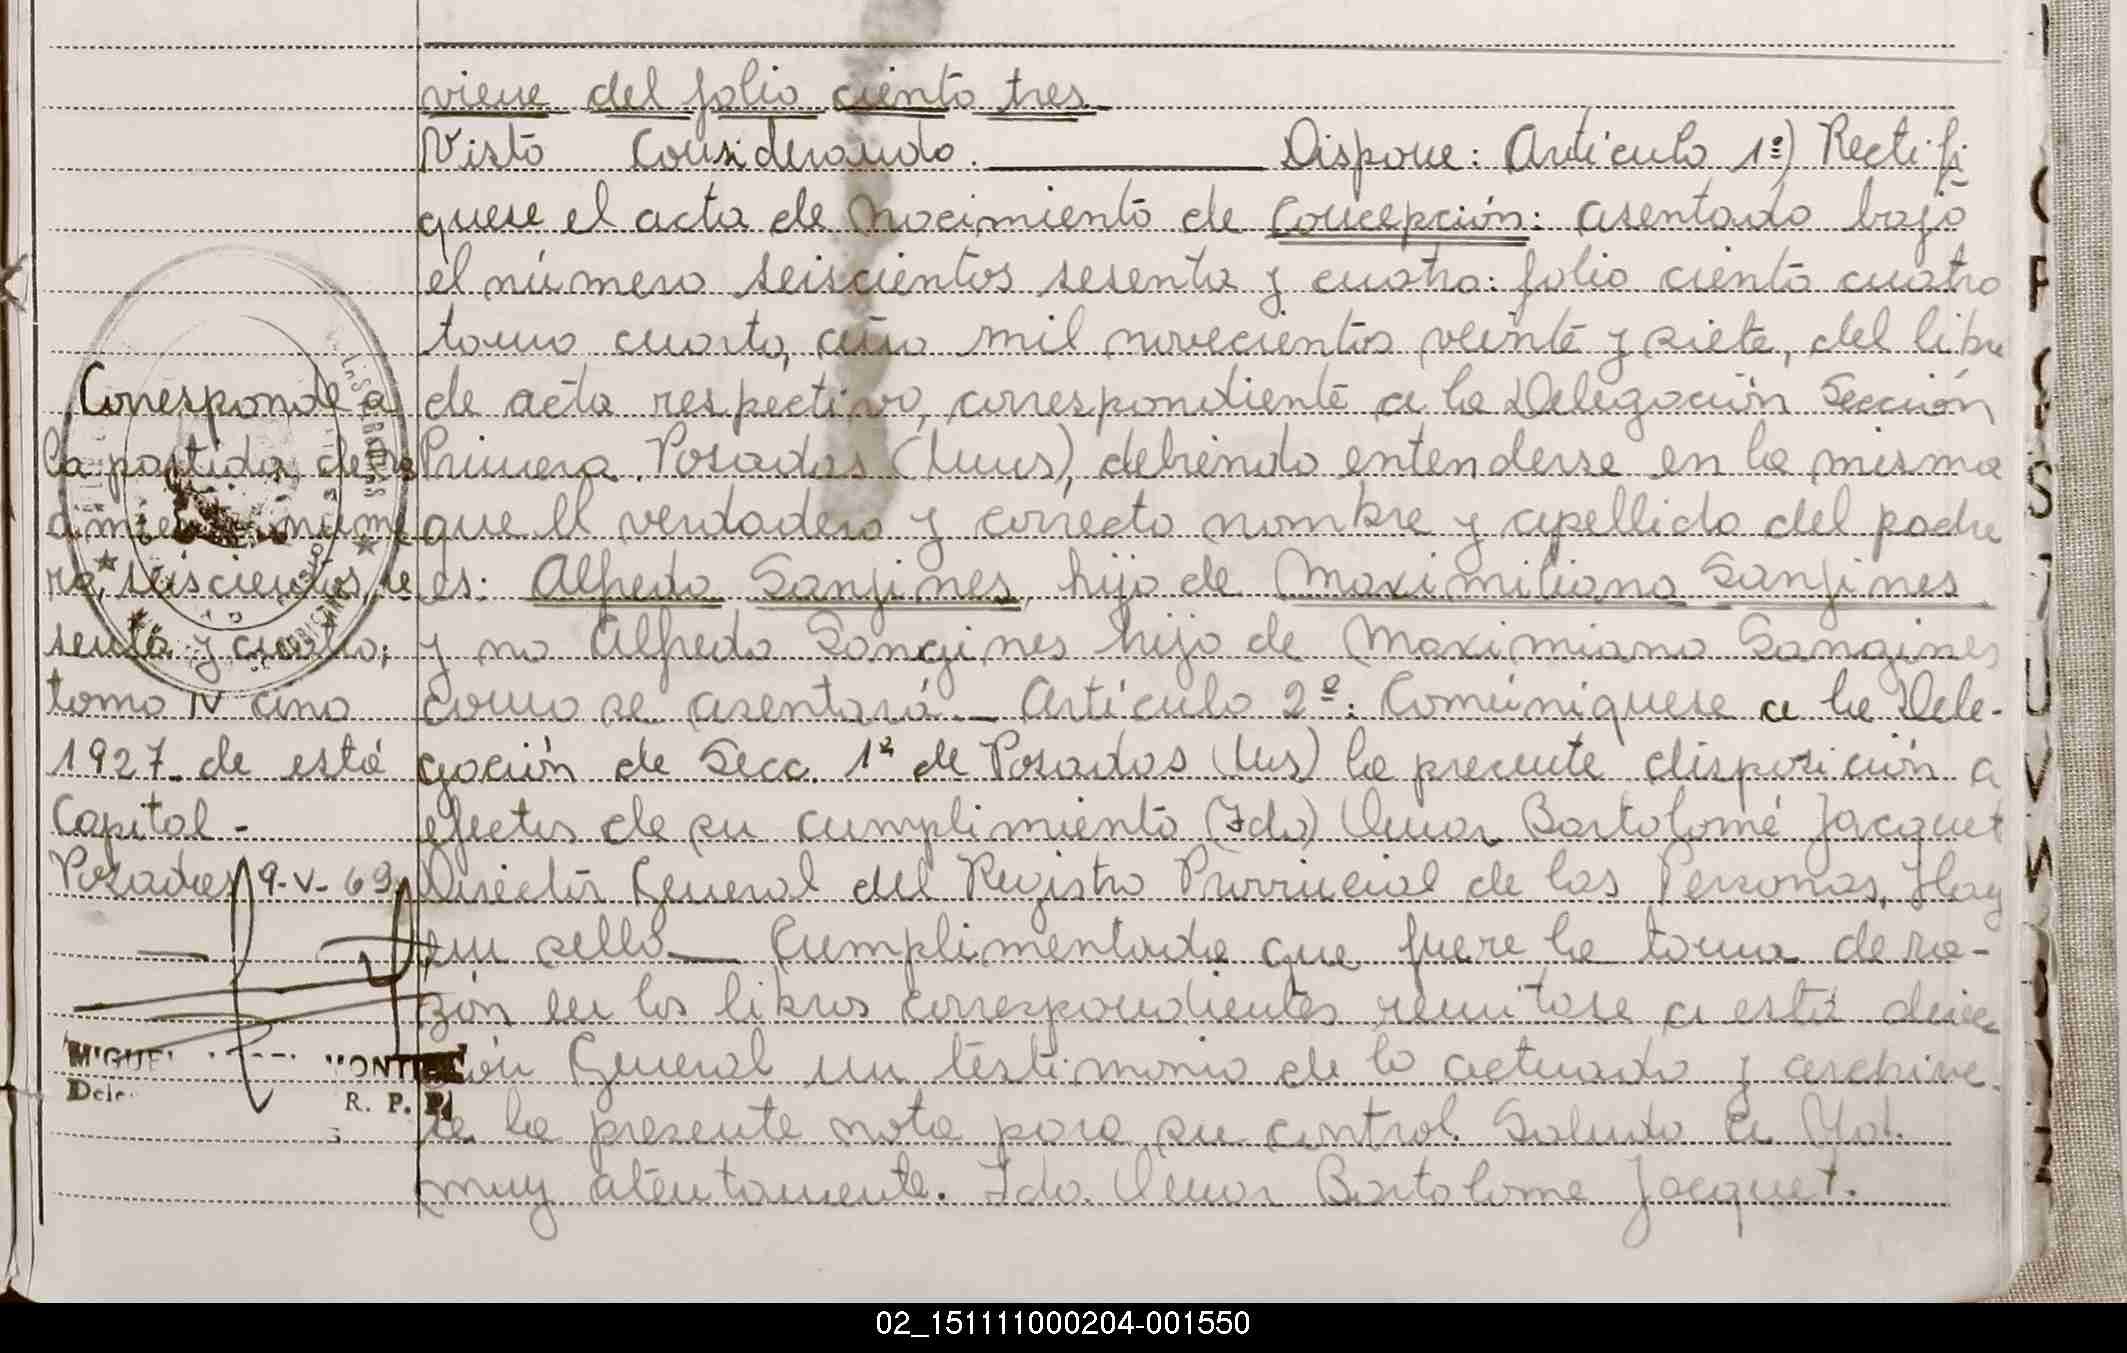 viene del folio ciento tres
Visto Considerando. Dispone: Artículo 1º) Rectifi
quese el acta de Nacimiento de Concepción: asentado bajo
el número seiscientos sesenta y cuatro: folio ciento cuatro
tomo cuarto, año mil novecientos veinte y siete, del libro
de acta respectivo, correspondiente a la Delegación Sección
Primera. Posadas (Mnes), debiendo entenderse en la misma
que el verdadero y correcto nombre y apellido del padre
es: Alfredo Sanjines, hijo de Maximiliano Sanjines
y no Alfredo Sangines hijo de Maximiano Sangines
como se asentará. Artículo 2º: Comúniquese a la Dele-
gación de Secc. 1ª de Posadas (Mns) la presente disposición a
efectos de su cumplimiento (Fdo) Omar Bartolomé Jacquet
Director General del Registro Provincial de las Personas, Hay
un sello— Cumplimentada que fuere la toma de ra-
zón en los libros correspondientes remitase a está direc
ción General un testimonio de lo actuado y archive-
se la presente nota para su control. Saludo a Ud.
muy aténtamente. Fdo. Omar Bartolome Jacquet.
Corresponde a
la partida de na
cimiento núme
ro, seiscientos, se
senta y cuatro;
tomo IV año
1927. de está
Capital-
Posadas 9-V-69
MIGUEL MONTIE
R. P. P.
02_151111000204-001550